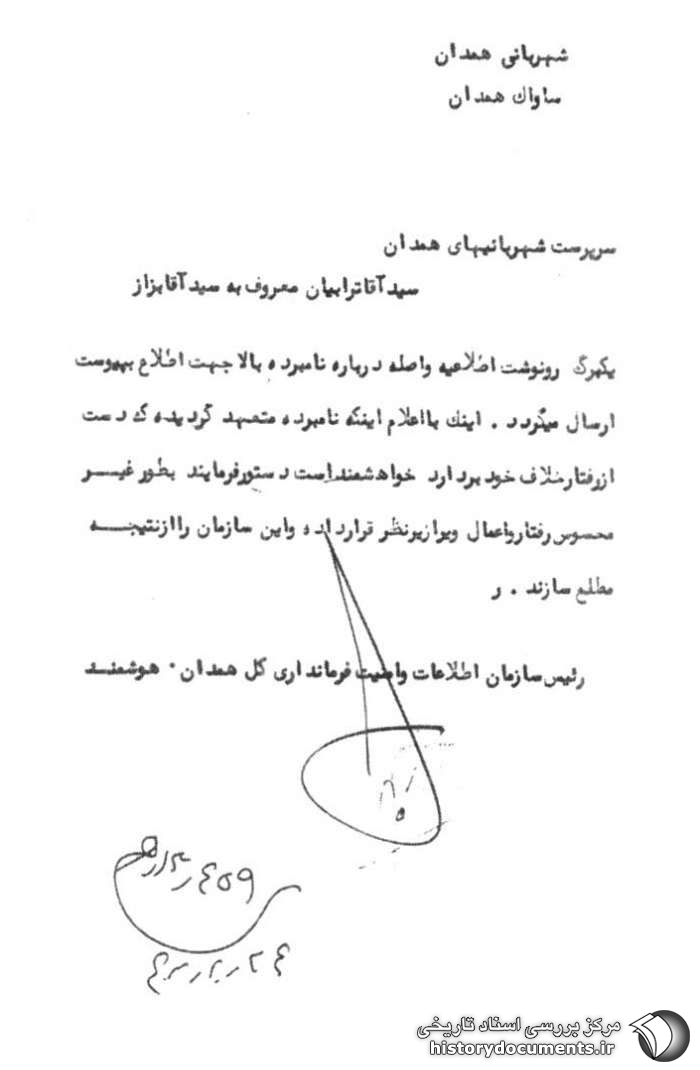 شهربانی همدان
ساواك همدان
سرپرست شهربانیهای همدان
سیدآقاترابیان معروف به سیدآقابزاز
یکبرگ رونوشت اطلاعیه واصله درباره نامبرده بالا جهت اطلاع بپیوست
ارسال میگردد . اینك بااعلام اینکه نامبرده متعهد گردیده که دست
ازرفتارخلاف خود بردارد خواهشمنداست دستورفرمایند بطور غیر
محسوس رفتارواعمال ویرازیرنظر قرارداده واین سازمان راازنتیجه
مطلع سازند . ر
رئیس سازمان اطلاعات وامنیت فرمانداری کل همدان . هوشمند
مرکز بررسی اسناد تاریخی
historydocuments.ir